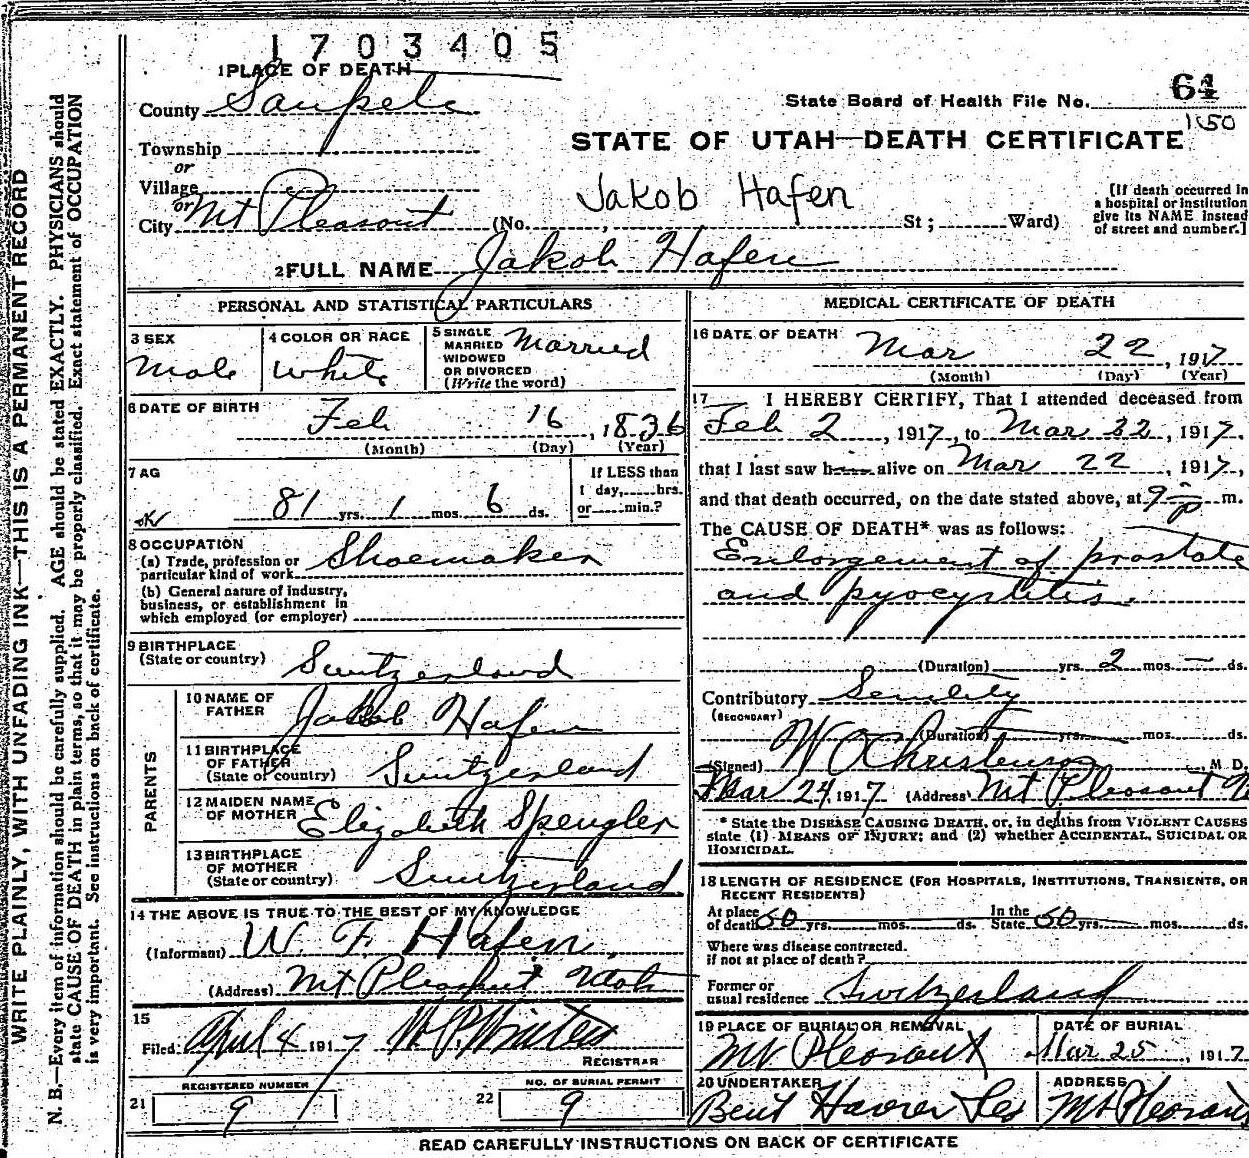 1703405
1 PLACE OF DEATH
County Sanpete
State Board of Health File No. 64
1850
STATE OF UTAH—DEATH CERTIFICATE
Township
or
Village
or
City Mt Pleasant (No. , St ; Ward)
Jakob Hafen
[If death occurred in
a hospital or institution
give its NAME instead
of street and number.]
2 FULL NAME Jakob Hafen
PERSONAL AND STATISTICAL PARTICULARS
3 SEX
Male
4 COLOR OR RACE
White
5 SINGLE
MARRIED
WIDOWED
OR DIVORCED
(Write the word)
Married
6 DATE OF BIRTH
Feb 16, 1836
(Month) (Day) (Year)
7 AG
81 yrs. 1 mos. 6 ds.
If LESS than
1 day, hrs.
or min.?
8 OCCUPATION
(a) Trade, profession or
particular kind of work Shoemaker
(b) General nature of industry,
business, or establishment in
which employed (or employer)
9 BIRTHPLACE
(State or country) Switzerland
PARENTS
10 NAME OF
FATHER Jakob Hafen
11 BIRTHPLACE
OF FATHER
(State or country) Switzerland
12 MAIDEN NAME
OF MOTHER Elizabeth Spengler
13 BIRTHPLACE
OF MOTHER
(State or country) Switzerland
14 THE ABOVE IS TRUE TO THE BEST OF MY KNOWLEDGE
(Informant) W. F. Hafen
(Address) Mt Pleasant Utah
15
Filed April 4 1917
REGISTRAR
REGISTERED NUMBER
21 9
NO. OF BURIAL PERMIT
22 9
MEDICAL CERTIFICATE OF DEATH
16 DATE OF DEATH
Mar 22, 1917
(Month) (Day) (Year)
17 I HEREBY CERTIFY, That I attended deceased from
Feb 2, 1917, to Mar 22, 1917,
that I last saw h alive on Mar 22, 1917,
and that death occurred, on the date stated above, at 9 p m.
The CAUSE OF DEATH* was as follows:
Enlargement of prostate
and pyocystitis.
(Duration) yrs. 2 mos. — ds.
Contributory Senility
(SECONDARY)
(Duration) yrs. mos. ds.
(Signed) W O Christenson, M D.
Mar 24, 1917 (Address) Mt Pleasant
* State the DISEASE CAUSING DEATH, or, in deaths from VIOLENT CAUSES
state (1) MEANS OF INJURY; and (2) whether ACCIDENTAL, SUICIDAL OR
HOMICIDAL.
18 LENGTH OF RESIDENCE (FOR HOSPITALS, INSTITUTIONS, TRANSIENTS, OR
RECENT RESIDENTS)
At place
of death 50 yrs. mos. ds. In the
State 50 yrs. mos. ds.
Where was disease contracted.
if not at place of death?
Former or
usual residence Switzerland
19 PLACE OF BURIAL OR REMOVAL
Mt Pleasant
DATE OF BURIAL
Mar 25, 1917
20 UNDERTAKER
ADDRESS
Mt Pleasant
READ CAREFULLY INSTRUCTIONS ON BACK OF CERTIFICATE
WRITE PLAINLY, WITH UNFADING INK—THIS IS A PERMANENT RECORD
N. B.—Every item of information should be carefully supplied. AGE should be stated EXACTLY. PHYSICIANS should
state CAUSE OF DEATH in plain terms, so that it may be properly classified. Exact statement of OCCUPATION
is very important. See instructions on back of certificate.